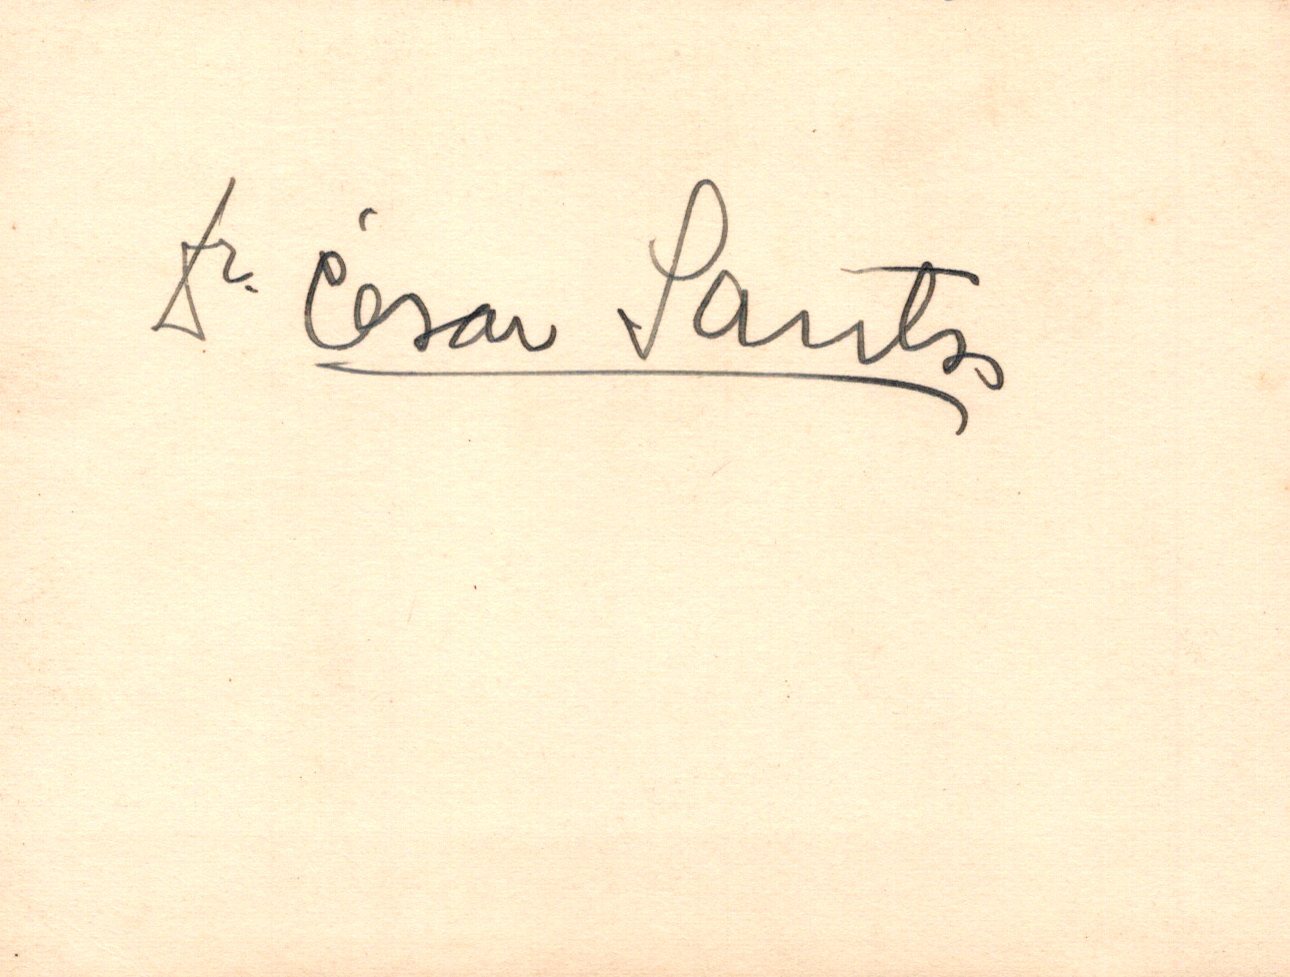 Fr. César Santos